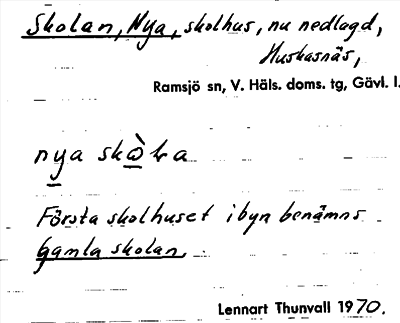 Skolan, Nya, skolhus, nu nedlagd,
Huskasnäs,
Ramsjö sn, V. Häls. doms. tg, Gävl. l.
nya skò̱ła
Första skolhuset i byn benämns
Gamla skolan.
Lennart Thunvall 1970.